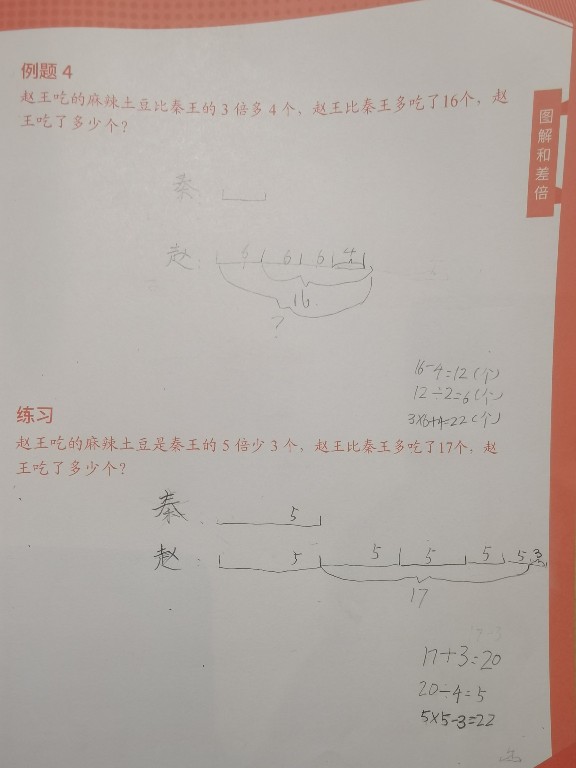 例题 4
赵王吃的麻辣土豆比秦王的 3 倍多 4 个，赵王比秦王多吃了16个，赵
王吃了多少个？
图解和差倍
秦
赵
6 6 4
16
?
16-4=12(个)
12÷2=6(个)
3×6+4=22(个)
练习
赵王吃的麻辣土豆是秦王的 5 倍少 3 个，赵王比秦王多吃了17个，赵
王吃了多少个？
秦 5
赵 5 5 5 5 5 3
17
17+3=20
20÷4=5
5×5-3=22